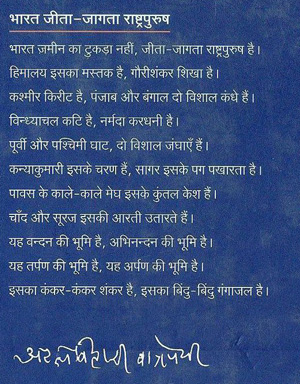 भारत जीता-जागता राष्ट्रपुरुष
भारत ज़मीन का टुकड़ा नहीं, जीता-जागता राष्ट्रपुरुष है।
हिमालय इसका मस्तक है, गौरीशंकर शिखा है।
कश्मीर किरीट है, पंजाब और बंगाल दो विशाल कंधे हैं।
विन्ध्याचल कटि है, नर्मदा करधनी है।
पूर्वी और पश्चिमी घाट, दो विशाल जंघाएँ हैं।
कन्याकुमारी इसके चरण हैं, सागर इसके पग पखारता है।
पावस के काले-काले मेघ इसके कुंतल केश हैं।
चाँद और सूरज इसकी आरती उतारते हैं।
यह वन्दन की भूमि है, अभिनन्दन की भूमि है।
यह तर्पण की भूमि है, यह अर्पण की भूमि है।
इसका कंकर-कंकर शंकर है, इसका बिंदु-बिंदु गंगाजल है।
अटल बिहारी वाजपेयी